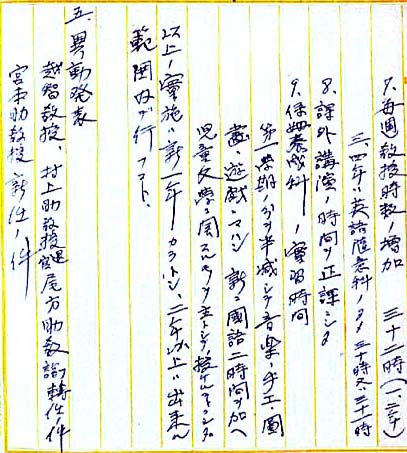 7. 毎週教授時数ノ増加 三十二時(一、二年)
三、四年ハ英語随意科ノタメ三十時又ハ三十二時
8. 課外講演ノ時間ヲ正課トシタ
9. 保姆養成科ノ実習時間
第一学期ノ分ヲ半減シテ音楽、手工、図
画、遊戯ニマハシ新ニ國語二時間ヲ加ヘ
児童文学ニ関スルモノヲ主トシテ授ケルコトニシタ
以上ノ實施ハ新一年カラトシ、二年以上ハ出来ル
範囲内デ行フコト、
五、異動発表
越智教授、村上助教授、尾方助教諭轉任ノ件
宮本助教授新任ノ件